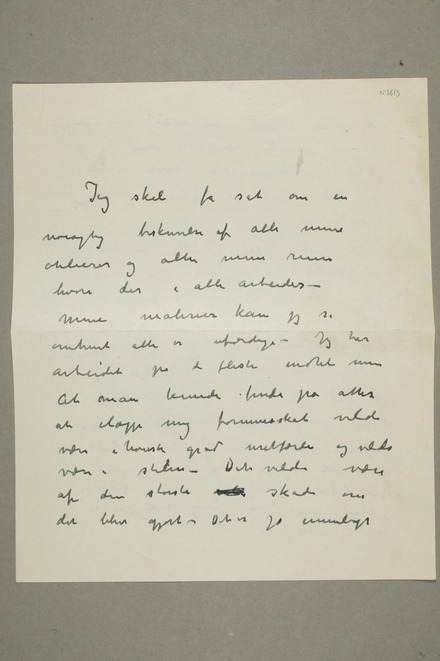 N 3613
Jeg skal få sat om en
nøiagtig beskrivelse af alle mine
atelierer og alle mine rum
hvori der i alle arbeides –
Mine malerier kan jeg se
omtrent alle er uferdige – Jeg har
arbeidet på de fleste indtil nu
At man kunde finde på atter
at ilægge mig formuesskat vilde
være i høieste grad uretfærdig og vilde
være i striden – Det vilde være
af den største skade om
det blev gjort – Det er jo umuligt